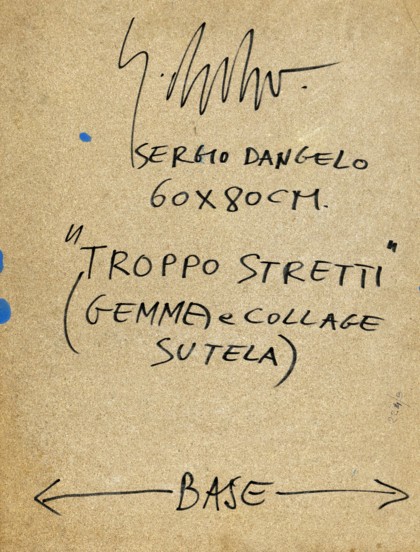 SERGIO DANGELO
60X80CM.
"TROPPO STRETTI"
(GEMME e COLLAGE
SU TELA)
BASE